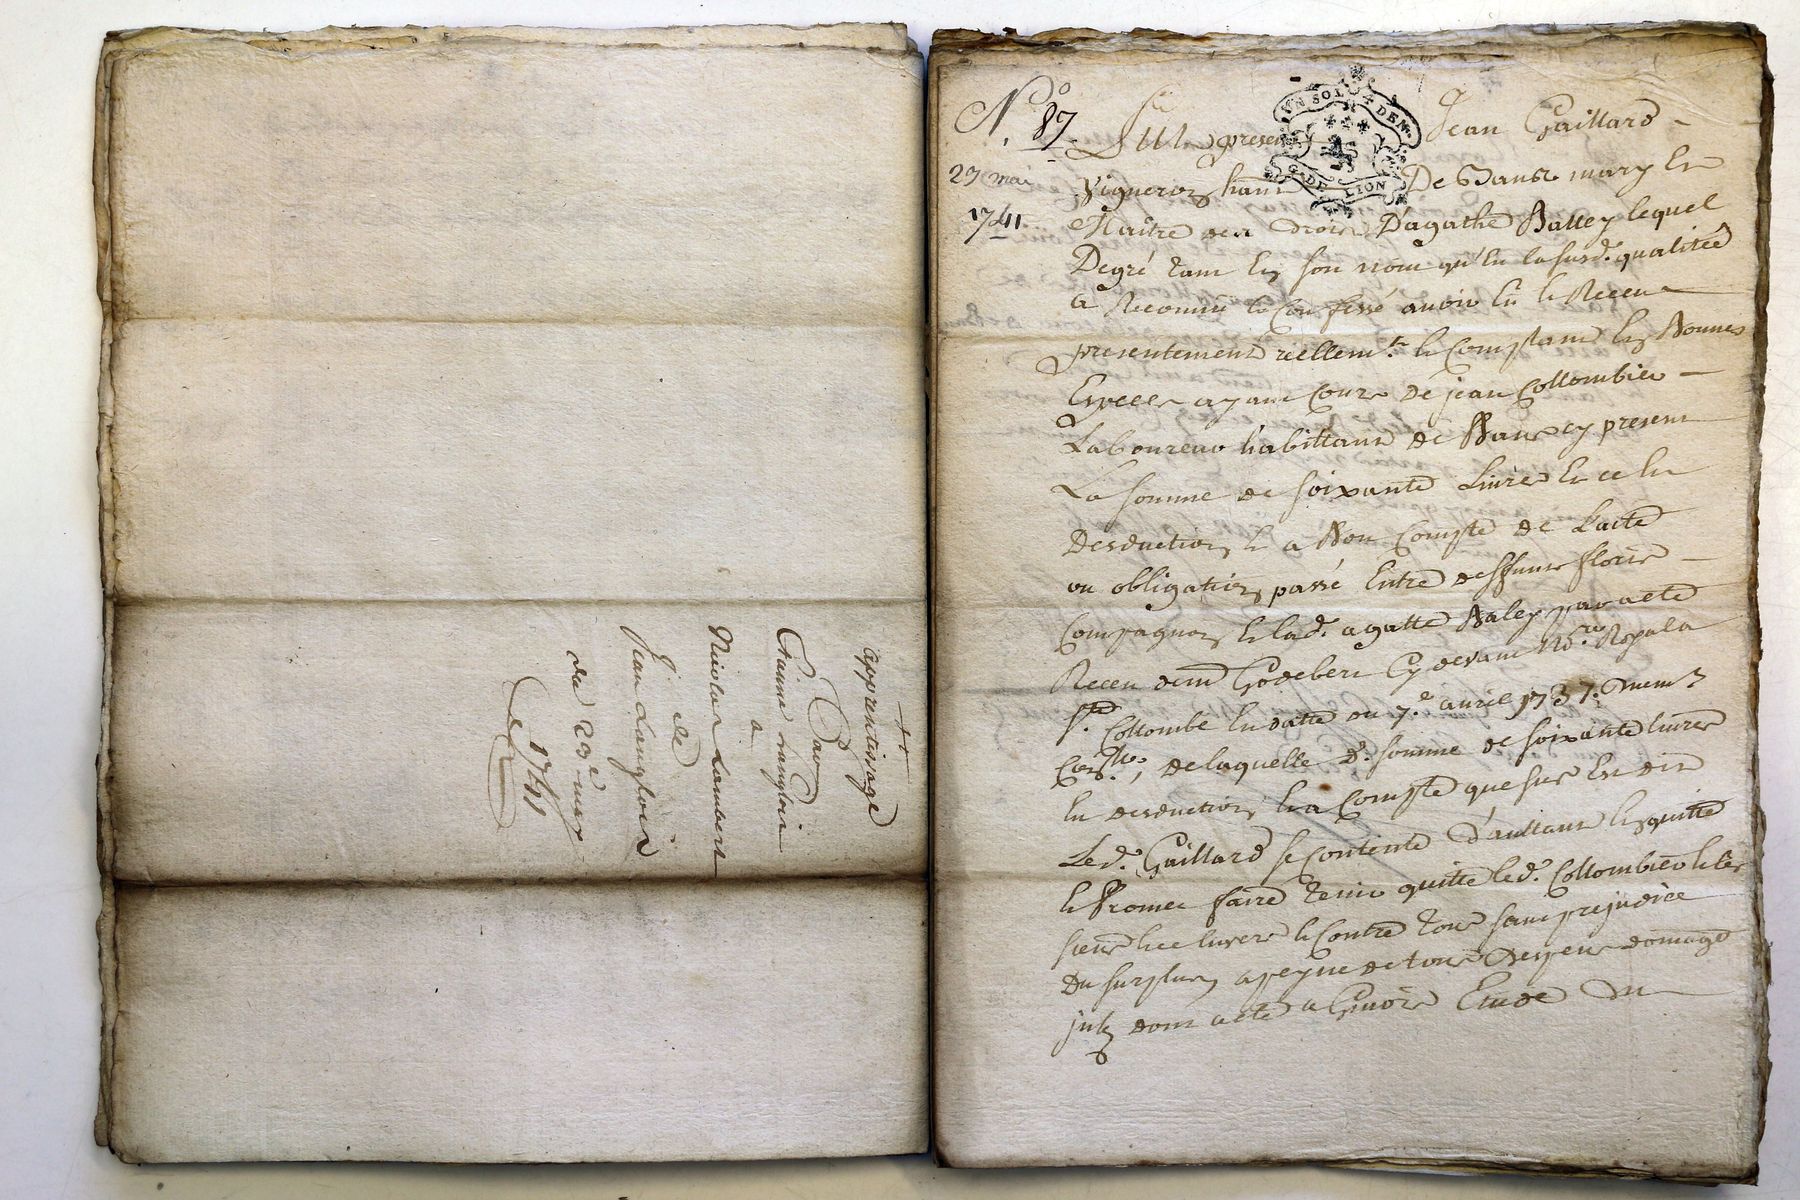 apprentissage
Par
Etienne Langlois
a
Nicolas Lambert
& de
Jean Langlois
du 23e may
1741
No. 87
27 mai
1741.
UN SOL 4 DEN.
G. DE LION
fut present Jean Gaillard
Vigneron de Bans mary Et
Maître des droits D'agathe Balley lequel
Degré tant En son nom qu'En la susd. qualitée
a Reconnu Et Confessé avoir Eu Et Receu
presentement réellemt. Et Comptant En Bonnes
Especes ayant Cours de jean Collombier
Laboureur habittant de Bans cy present
La somme de soixante Livres Et ce En
Desduction Et a Bon Compte de Lacte
ou obligation passé Entre deffunt floris
Compagnon Et lad. agatte Baley par acte
Receu dem Godebert Cy devant No.re Royal a
Ste. Collombe En datte du 7.e avril 1737.
de laquelle de. somme de soixante livres
En desduction Et a Compte que sus Est dit
Led. Gaillard se Contente D'aultant En quitte
Et Promet faire tenir quitte led. Collombier Et les
siens Et ce Envers Et Contre tous sans prejudice
Du surplus a peyne de tous Despens domage
jnts dont acte a Givors Etude du